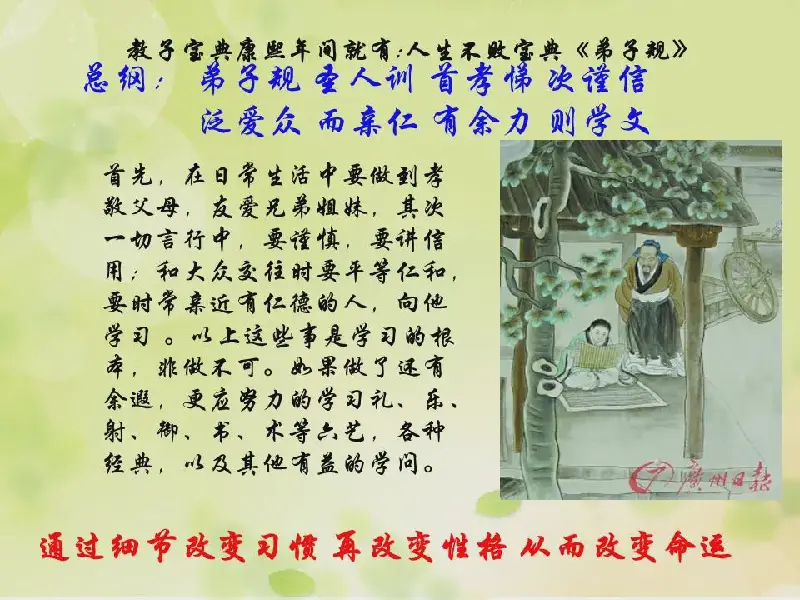 教子宝典康熙年间就有:人生不败宝典《弟子规》
总纲: 弟子规 圣人训 首孝悌 次谨信
泛爱众 而亲仁 有余力 则学文
首先，在日常生活中要做到孝
敬父母，友爱兄弟姐妹，其次
一切言行中，要谨慎，要讲信
用；和大众交往时要平等仁和，
要时常亲近有仁德的人，向他
学习 。以上这些事是学习的根
本，非做不可。如果做了还有
余遐，更应努力的学习礼、乐、
射、御、书、术等六艺，各种
经典，以及其他有益的学问。
广州日报
通过细节改变习惯 再改变性格 从而改变命运